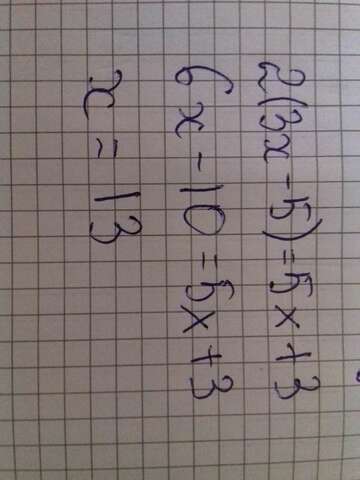 2(3x - 5) = 5x + 3
6x - 10 = 5x + 3
x = 13